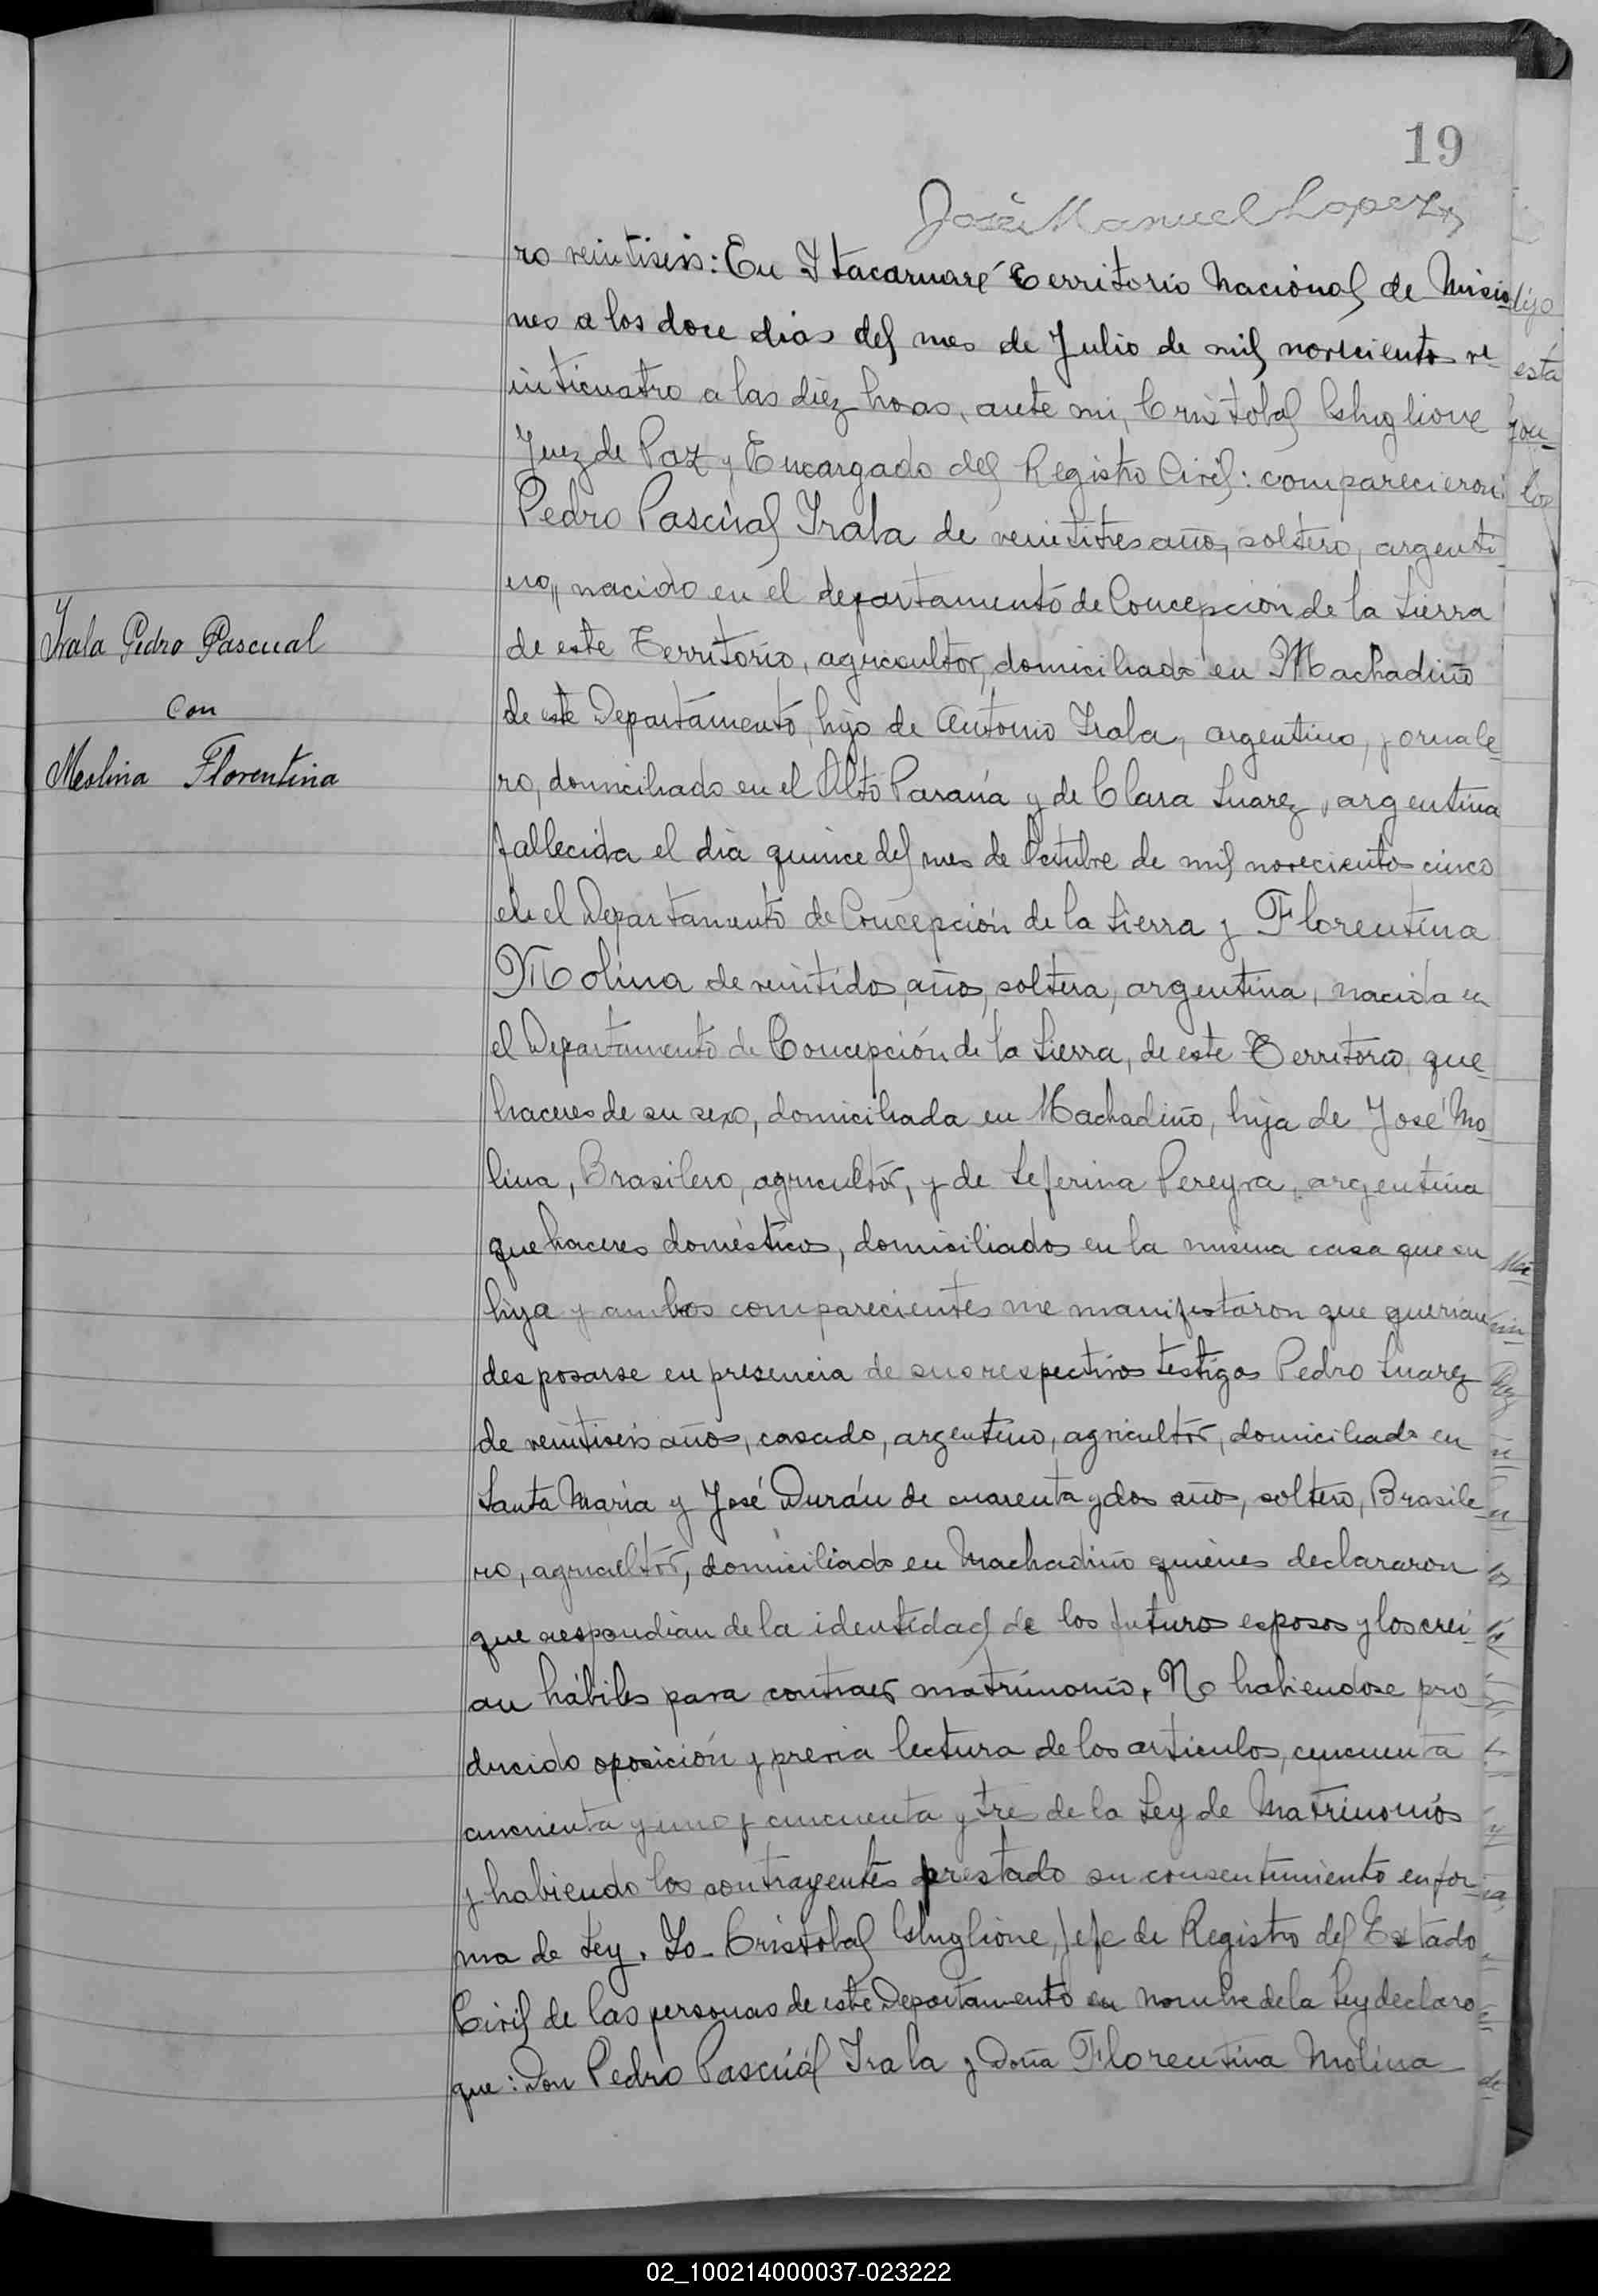 19
José Manuel Lopez
ro veintiseis: En Itacaruaré Territorio Nacional de Misio
nes a los doce dias del mes de Julio de mil novecientos ve
inticuatro a las diez horas, ante mi, Cristobal Ghiglione
Juez de Paz y Encargado del Registro Civil: comparecieron:
Pedro Pascual Irala de veintitres años, soltero, argenti
no, nacido en el departamento de Concepción de la Sierra
de este Territorio, agricultor, domiciliado en Machadiño
de este Departamento, hijo de Antonio Irala, argentino, jornale
ro, domiciliado en el Alto Paraná y de Clara Suarez, argentina
fallecida el dia quince del mes de Octubre de mil novecientos cinco
en el Departamento de Concepción de la Sierra y Florentina
Molina de veintidos años, soltera, argentina, nacida en
el Departamento de Concepción de la Sierra, de este Territorio, que
haceres de su sexo, domiciliada en Machadiño, hija de José Mo
lina, Brasilero, agricultor, y de Seferina Pereyra, argentina
que haceres domésticos, domisiliados en la misma casa que su
hija y ambos comparecientes me manifestaron que querian
desposarse en presencia de sus respectivos testigos Pedro Suarez
de veintiseis años, casado, argentino, agricultor, domiciliado en
Santa Maria y José Durán de cuarenta y dos años, soltero, Brasile
ro, agricultor, domiciliado en Machadiño quiénes declararon
que respondian de la identidad de los futuros esposos y los crei
an hábiles para contraer matrimonio. No habiendose pro
ducido oposición y previa lectura de los articulos, cincuenta
cincuenta y uno y cincuenta y tres de la Ley de Matrimonios
y habiendo los contrayentes prestado su consentimiento en for
ma de Ley. Yo Cristobal Ghiglione, Jefe de Registro del Estado
Civil de las personas de este Departamento en nombre de la Ley declaro
que: Don Pedro Pascuál Irala y Doña Florentina Molina
Irala Pedro Pascual
con
Molina Florentina
02_100214000037-023222